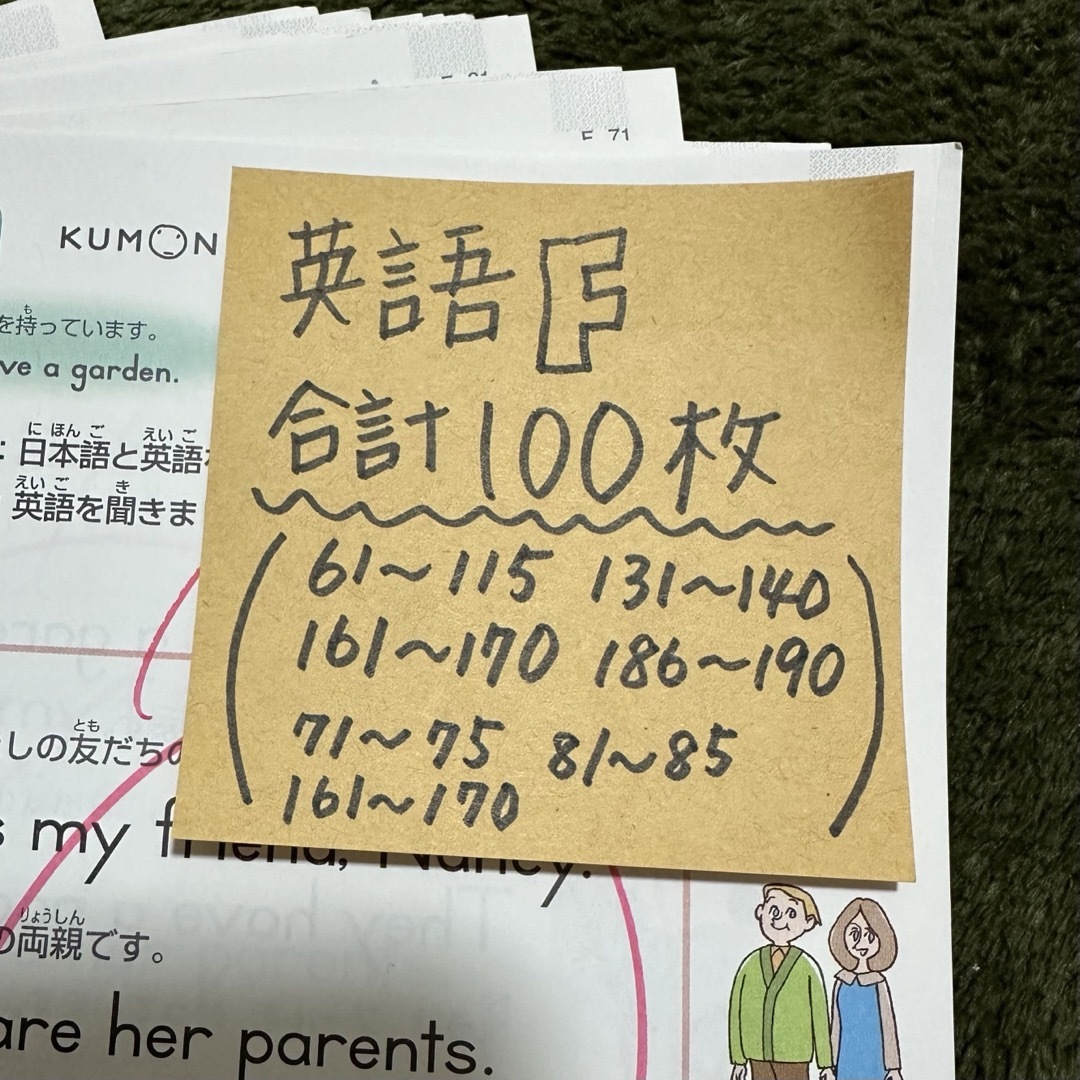 F 71
KUMON
英語 F
合計100枚
61～115 131～140
161～170 186～190
71～75 81～85
161～170
を持っています。
ve a garden.
日本語と英語
英語を聞きま
しの友だちの
s my friend, Nancy.
の両親です。
are her parents.